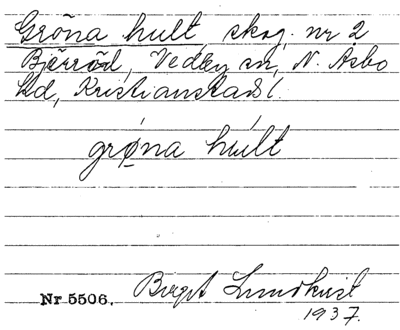 Gröna hult, skog. nr 2
Bjärröd, Vedby sn, N. Åsbo
hd, Kristianstads l.
grø̄na hu̍lt
Nr 5506. Birgit Lundkvist
1937.